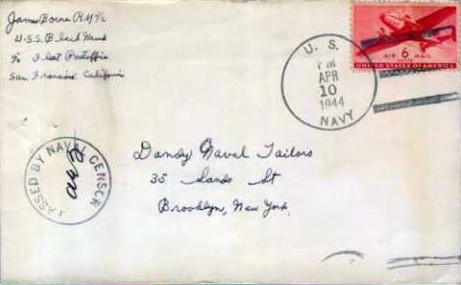 James Boerne RM 3/c
U.S.S. Black Hawk
c/o Fleet Postoffice
San Francisco California
U. S.
PM
APR
10
1944
NAVY
AIR 6 MAIL
UNITED STATES OF AMERICA
PASSED BY NAVAL CENSOR
Dandy Naval Tailors
35 Sands St
Brooklyn, New York.